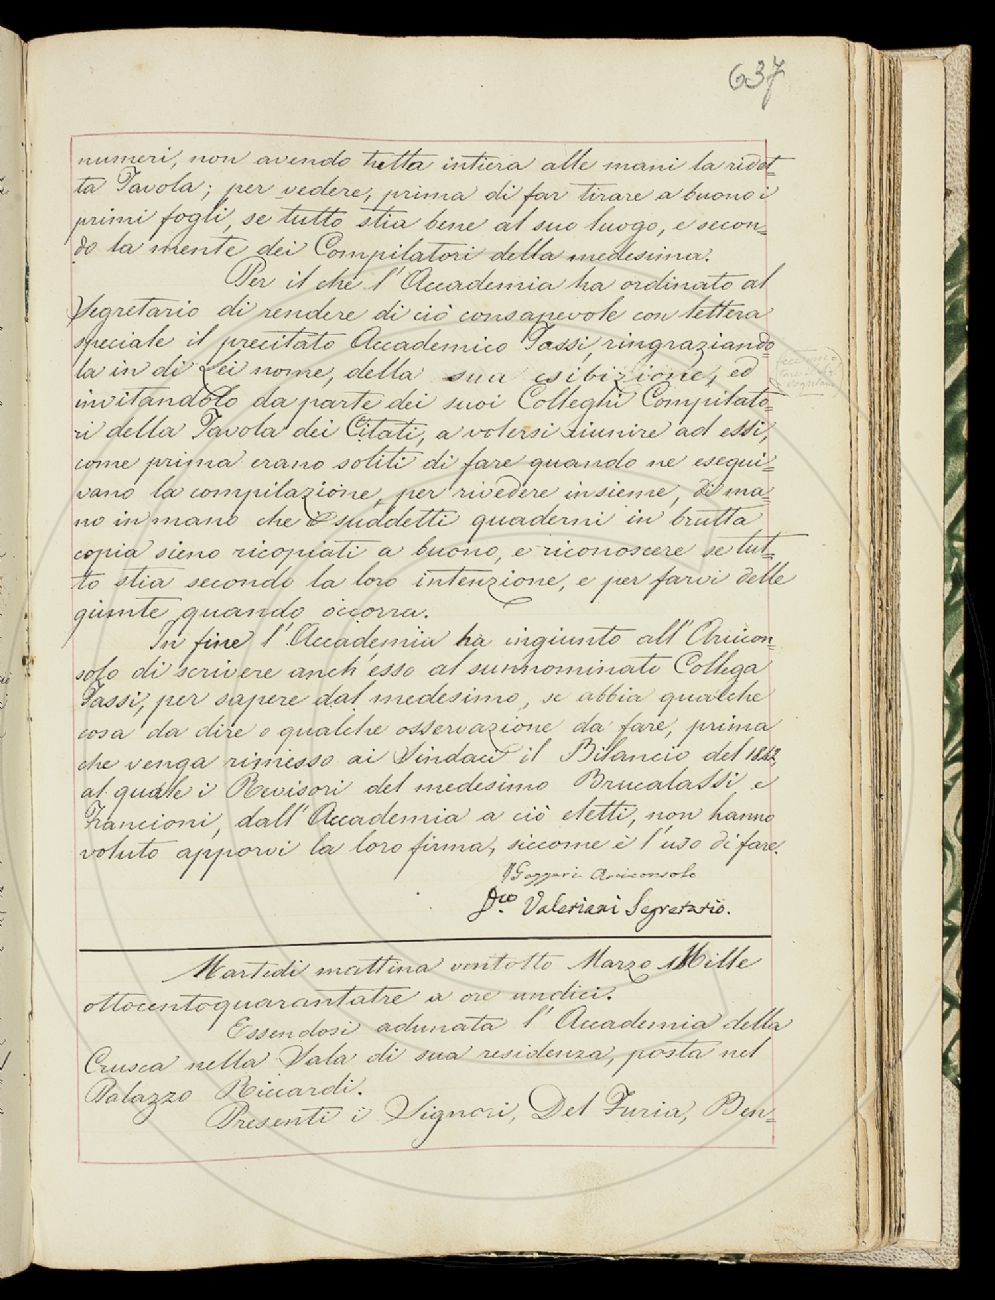 637
numeri, non avendo tutta intiera alle mani la ridot=
ta Tavola; per vedere, prima di far tirare a buono i
primi fogli, se tutto stia bene al suo luogo, e secon=
do la mente dei Compilatori della medesima.
Per il che l'Accademia ha ordinato al
Segretario di rendere di ciò consapevole con lettera
speciale il precitato Accademico Tassi, ringraziando=
la in di Lei nome, della sua esibizione, ed
invitandolo da parte dei suoi Colleghi Compilato=
ri della Tavola dei Citati, a volersi riunire ad essi,
come prima erano soliti di fare quando ne esegui=
vano la compilazione, per rivedere insieme, di ma=
no in mano che i suddetti quaderni in brutta
copia sieno ricopiati a buono, e riconoscere se tut=
to stia secondo la loro intenzione, e per farvi delle
giunte quando occorra.
In fine l'Accademia ha ingiunto all'Arcicon=
solo di scrivere anch'esso al sunnominato Collega
Tassi, per sapere dal medesimo, se abbia qualche
cosa da dire o qualche osservazione da fare, prima
che venga rimesso ai Sindaci il Bilancio del 1842,
al quale i Revisori del medesimo Brucalassi e
Francioni, dall'Accademia a ciò eletti, non hanno
voluto apporvi la loro firma, siccome è l'uso di fare.
Arciconsolo
Dco. Valeriani Segretario.
Martedì mattina ventotto Marzo Mille
ottocentoquarantatre a ore undici.
Essendosi adunata l'Accademia della
Crusca nella Sala di sua residenza, posta nel
Palazzo Riccardi.
Presenti i Signori, Del Furia, Ben=